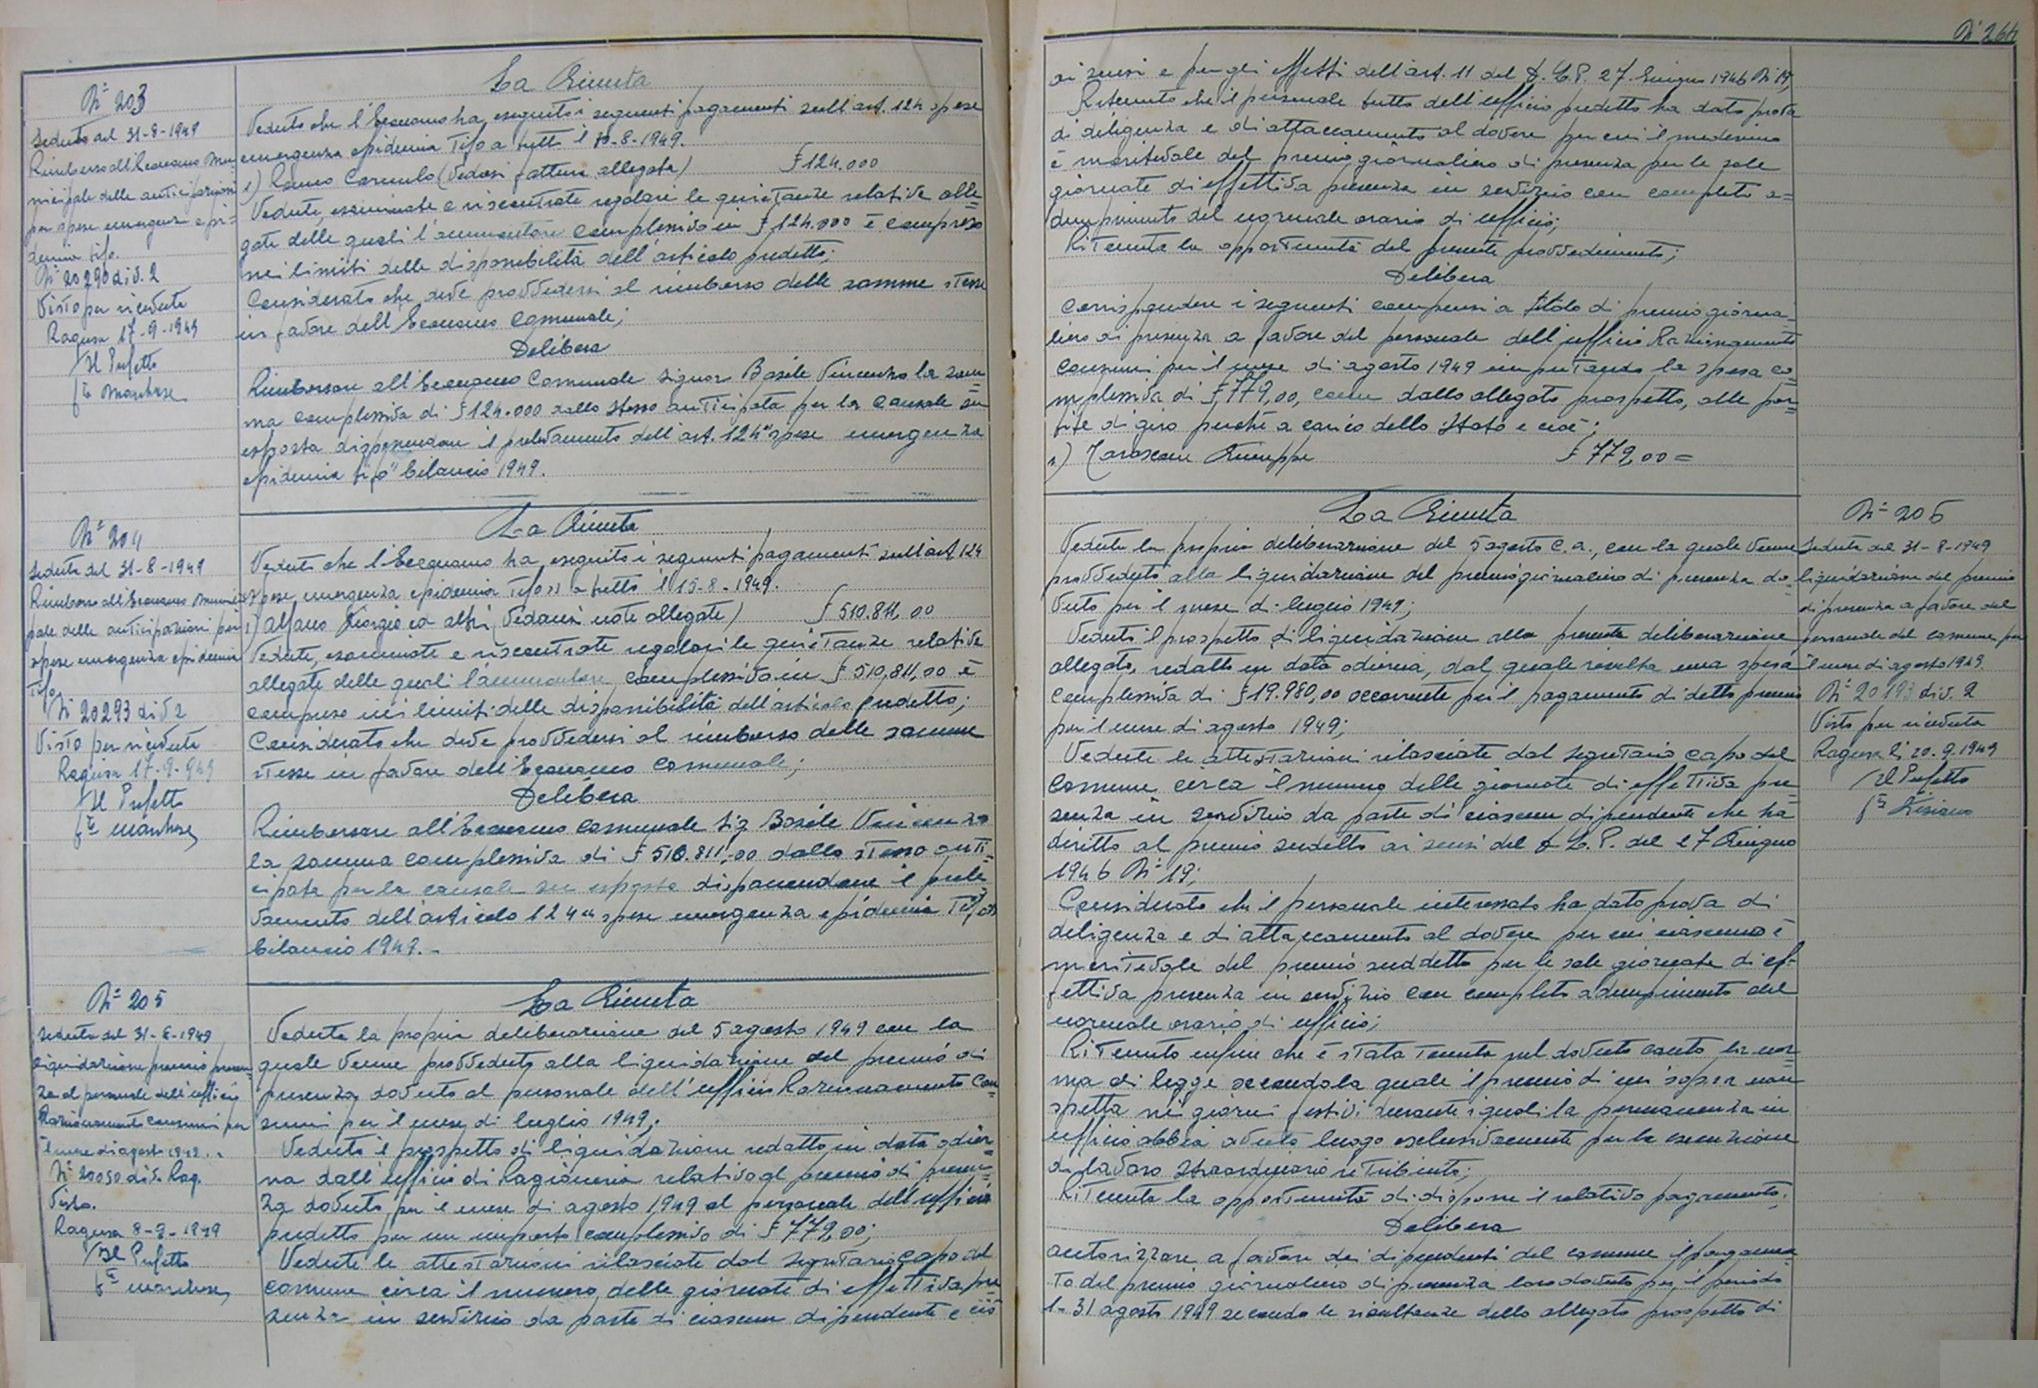 N° 203
Seduta del 31-8-1949
Rimborso all'Economo Mu-
nicipale delle anticipazioni
per spese emergenza epi-
demia tifo.
N° 20290 div. 2
Visto per ricevuta
Ragusa 17-9-1949
Il Prefetto
f.to Marchese
La Giunta
Veduto che l'Economo ha eseguito i seguenti pagamenti sull'art. 124 spese
emergenza epidemia Tifo a tutto il -8-1949.
1) Carmelo (Vedasi fattura allegata) £ 124.000
Vedute esaminate e riscontrate regolari le quietanze relative alle-
gate delle quali l'ammontare complessivo in £ 124.000 è compreso
nei limiti delle disponibilità dell'articolo predetto;
Considerato che deve provvedersi al rimborso delle somme stesse
in favore dell'Economo Comunale;
Delibera
Rimborsare all'Economo Comunale Signor Basile Vincenzo la som-
ma complessiva di £ 124.000 dallo stesso anticipata per la causale su
esposta disponendone il prelevamento dell'art. 124 "spese emergenza
epidemia tifo" bilancio 1949.
N° 204
Seduta del 31-8-1949
Rimborso all'Economo Munici-
pale delle anticipazioni per
spese emergenza epidemia
Tifo
N° 20293 div 2
Visto per ricevuta
Ragusa 17-9-949
Il Prefetto
f.to Marchese
La Giunta
Veduto che l'Economo ha eseguito i seguenti pagamenti sull'art 124
spese emergenza epidemia Tifo a tutto il 15-8-1949.
1) Alfano Giorgio ed altri (Vedansi note allegate) £ 510.811,00
Vedute, esaminate e riscontrate regolari le quietanze relative
allegate delle quali l'ammontare complessivo in £ 510,811,00 è
compreso nei limiti delle disponibilità dell'articolo predetto;
Considerato che deve provvedersi al rimborso delle somme
stesse in favore dell'Economo Comunale;
Delibera
Rimborsare all'Economo Comunale Sig. Basile Vincenzo
la somma complessiva di £ 510.811,00 dallo stesso anti-
cipata per la causale su esposta disponendone il prele
vamento dell'articolo 124 "spese emergenza epidemia Tifo"
bilancio 1949.-
N° 205
Seduta del 31-8-1949
Liquidazione premio presen-
za al personale dell'ufficio
Razionamento consumi per
il mese di agosto 1949.
N° 20050 div. Rag.
Visto.
Ragusa 8-9-1949
Il Prefetto
f.to Marchese
La Giunta
Veduta la propria deliberazione del 5 agosto 1949 con la
quale venne provveduto alla liquidazione del premio di
presenza dovuto al personale dell'ufficio Razionamento Con-
sumi per il mese di luglio 1949;
Veduto il prospetto di liquidazione redatto in data odier-
na dall'ufficio di Ragioneria relativo al premio di presen-
za dovuto per il mese di agosto 1949 al personale dell'ufficio
predetto per un importo complessivo di £ 779,00;
Vedute le attestazioni rilasciate dal Segretario Capo del
Comune circa il numero delle giornate di effettiva pre
senza in servizio da parte di ciascun dipendente e ciò
N° 264
ai sensi e per gli effetti dell'art. 11 del D.L.P. 27 Giugno 1946 N° 19;
Ritenuto che il personale tutto dell'ufficio predetto ha dato prova
di diligenza e di attaccamento al dovere per cui il medesimo
è meritevole del premio giornaliero di presenza per le sole
giornate di effettiva presenza in servizio con completo a-
dempimento del normale orario di ufficio;
Ritenuta la opportunità del presente provvedimento;
Delibera
Corrispondere i seguenti compensi a titolo di premio giorna-
liero di presenza a favore del personale dell'ufficio Razionamento
consumi per il mese di agosto 1949 imputando la spesa co-
mplessiva di £ 779,00, come dallo allegato prospetto, alle par-
tite di giro perchè a carico dello Stato e cioè:
1) Giuseppe £ 779,00=
La Giunta
Veduta la propria deliberazione del 5 agosto c.a., con la quale venne
provveduto alla liquidazione del premio giornaliero di presenza do-
vuto per il mese di luglio 1949;
Veduto il prospetto di liquidazione alla presente deliberazione
allegato, redatto in data odierna, dal quale risulta una spesa
complessiva di £ 19.980,00 occorrente per il pagamento di detto premio
per il mese di agosto 1949;
Vedute le attestazioni rilasciate dal Segretario Capo del
Comune circa il numero delle giornate di effettiva pre-
senza in servizio da parte di ciascun dipendente che ha
diritto al premio suddetto ai sensi del D.L.P. del 27 Giugno
1946 N° 19;
Considerato che il personale interessato ha dato prova di
diligenza e di attaccamento al dovere per cui ciascuno è
meritevole del premio suddetto per le sole giornate di ef-
fettiva presenza in servizio con completo adempimento del
normale orario di ufficio;
Ritenuto infine che è stata tenuta nel dovuto conto la nor
ma di legge secondo la quale il premio di cui sopra non
spetta nei giorni festivi durante i quali la permanenza in
ufficio abbia avuto luogo esclusivamente per la esecuzione
di lavoro straordinario retribuito;
Ritenuta la opportunità di disporre il relativo pagamento;
Delibera
autorizzare a favore dei dipendenti del comune il pagamen
to del premio giornaliero di presenza loro dovuto per il periodo
1-31 agosto 1949 secondo le risultanze dello allegato prospetto di
N° 206
Seduta del 31-8-1949
liquidazione del premio
di presenza a favore del
personale del comune per
il mese di agosto 1949
N° 20193 div. 2
Visto per ricevuta
Ragusa li 20.9.1949
Il Prefetto
f.to